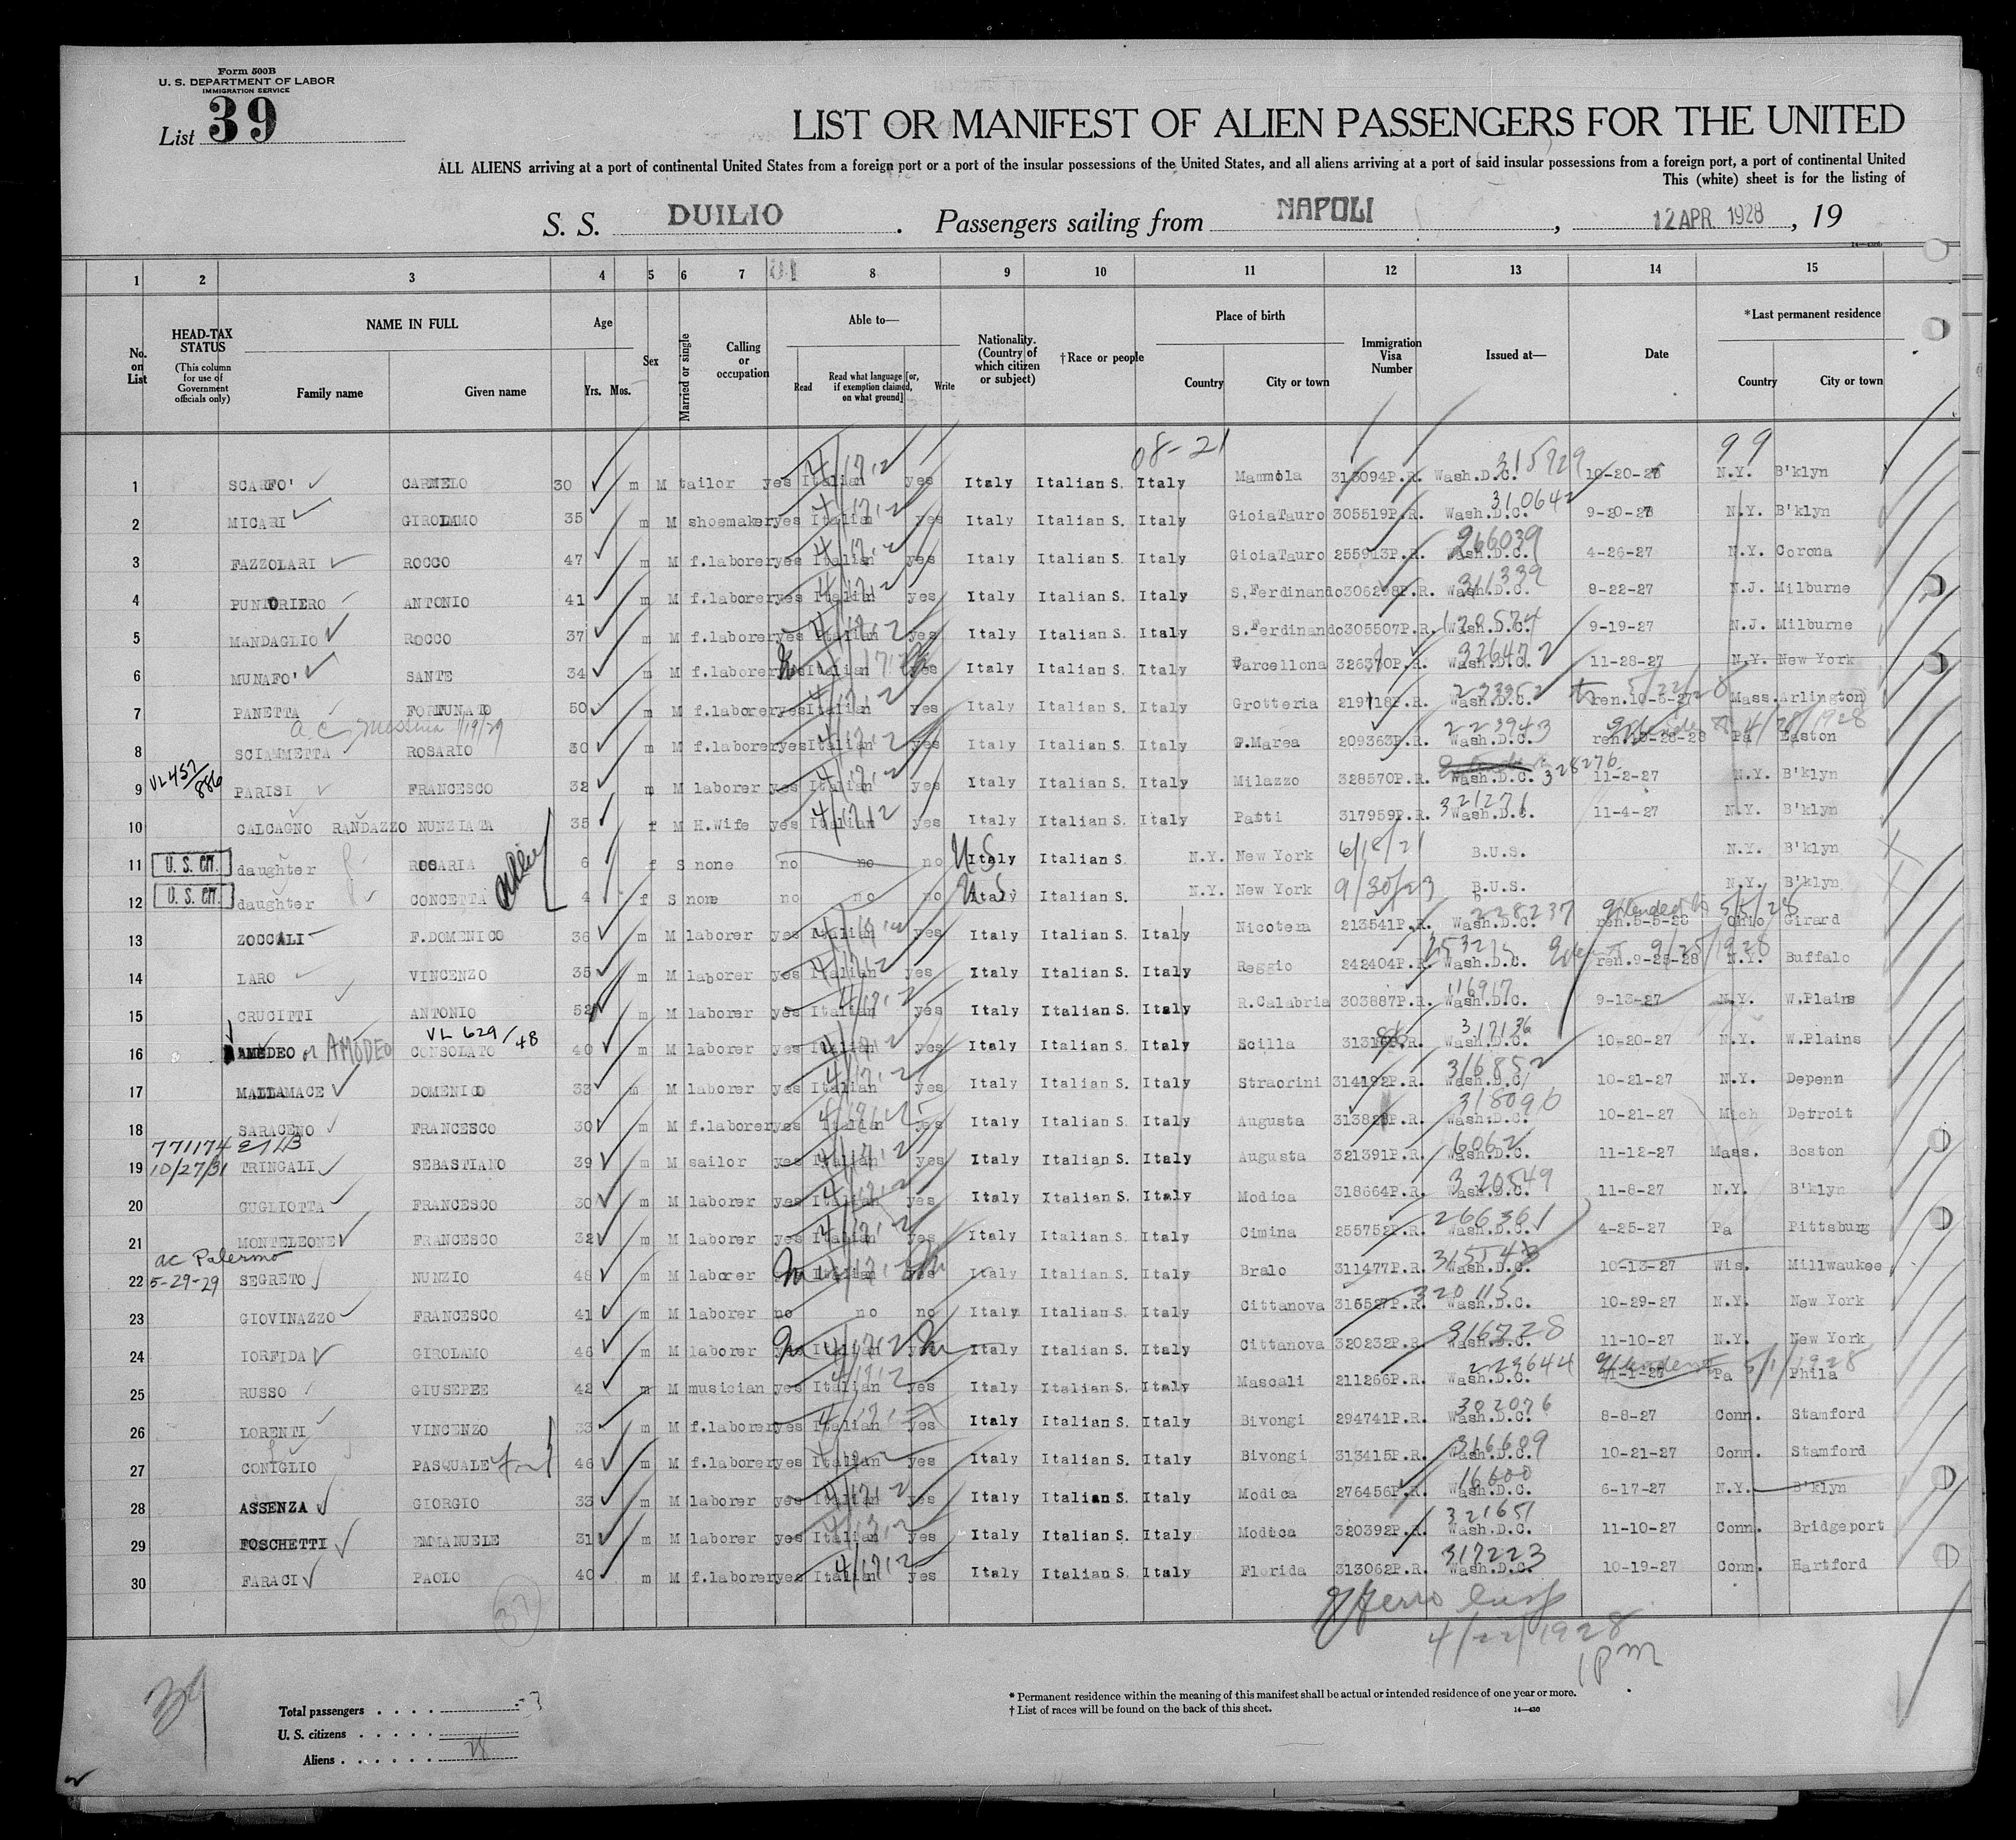 Form 500B
U. S. DEPARTMENT OF LABOR
IMMIGRATION SERVICE
List 39
LIST OR MANIFEST OF ALIEN PASSENGERS FOR THE UNITED
ALL ALIENS arriving at a port of continental United States from a foreign port or a port of the insular possessions of the United States, and all aliens arriving at a port of said insular possessions from a foreign port, a port of continental United
This (white) sheet is for the listing of
S. S. DUILIO. Passengers sailing from NAPOLI, 12 APR. 1928, 19
1 2 3 4 5 6 7 8 9 10 11 12 13 14 15
No. on List
HEAD-TAX STATUS
(This column for use of Government officials only)
NAME IN FULL
Family name Given name
Age
Yrs. Mos.
Sex
Married or single
Calling or occupation
Able to—
Read
Read what language [or, if exemption claimed, on what ground]
Write
Nationality. (Country of which citizen or subject)
†Race or people
Place of birth
Country City or town
Immigration Visa Number
Issued at—
Date
*Last permanent residence
Country City or town
08-21 99
1 SCARFO' CARMELO 30 m M tailor yes Italian yes Italy Italian S. Italy Mammola 313094P.R. Wash.D.C. 315929 N.Y. B'klyn
2 MICARI 35 m M shoemaker yes Italian yes Italy Italian S. Italy GioiaTauro 305519P.R. Wash.D.C. 310642 N.Y. B'klyn
3 FAZZOLARI ROCCO 47 m M f.laborer yes Italian yes Italy Italian S. Italy GioiaTauro 255913P.R. Wash.D.C. 266039 4-26-27 N.Y. Corona
4 PUNTORIERO ANTONIO 41 m M f.laborer yes Italian yes Italy Italian S. Italy S.Ferdinando 306298P.R. Wash.D.C. 311339 9-22-27 N.J. Milburne
5 MANDAGLIO ROCCO 37 m M f.laborer yes Italian yes Italy Italian S. Italy S.Ferdinando 305507P.R. Wash.D.C. 9-19-27 N.J. Milburne
6 MUNAFO' SANTE 34 m M f.laborer yes Italian yes Italy Italian S. Italy Barcellona 326370P.R. Wash.D.C. 11-28-27 N.Y. New York
7 PANETTA FORTUNATO 50 m M f.laborer yes Italian yes Italy Italian S. Italy Grotteria 219718P.R. Wash.D.C. Mass. Arlington
a.c. Messina 1/19/29
8 SCIAMMETTA ROSARIO 30 m M f.laborer yes Italian yes Italy Italian S. Italy 209363P.R. Wash.D.C. 223943 4/28/1928 Pa Easton
9 VL 457/886 PARISI FRANCESCO 32 m M laborer yes Italian yes Italy Italian S. Italy Milazzo 328570P.R. Wash.D.C. 328276 11-2-27 N.Y. B'klyn
10 CALCAGNO RANDAZZO NUNZIATA 35 f M H.Wife yes Italian yes Italy Italian S. Italy Patti 317959P.R. Wash.D.C. 321276 11-4-27 N.Y. B'klyn
11 U. S. CIT. daughter ROSARIA 6 f S none no no no Italy U S Italian S N.Y. New York 6/18/21 B.U.S. N.Y. B'klyn
12 U. S. CIT. daughter CONCETTA 4 f S none no no no Italy U S Italian S. N.Y. New York 9/30/23 B.U.S. N.Y. B'klyn
13 ZOCCALI F.DOMENICO 36 m M laborer yes Italian yes Italy Italian S. Italy Nicotera 213541P.R. Wash.D.C. 228237 ren.5-5-28 5/5/28 Ohio Girard
14 LARO VINCENZO 35 m M laborer yes Italian yes Italy Italian S. Italy Reggio 242404P.R. Wash.D.C. ren.9-25-28 9/25/1928 N.Y. Buffalo
15 CRUCITTI ANTONIO 52 m M laborer yes Italian yes Italy Italian S. Italy R.Calabria 303887P.R. Wash.D.C. 116917 9-13-27 N.Y. W.Plains
16 AMEDEO or AMODEO CONSOLATO VL 629/48 40 m M laborer yes Italian yes Italy Italian S. Italy Scilla Wash.D.C. 317136 10-20-27 N.Y. W.Plains
17 MALLAMACE DOMENICO 33 m M laborer yes Italian yes Italy Italian S. Italy Straorini 314192P.R. Wash.D.C. 316852 10-21-27 N.Y. Depenn
18 SARACENO FRANCESCO 30 m M f.laborer yes Italian yes Italy Italian S. Italy Augusta Wash.D.C. 318090 10-21-27 Mich Detroit
771174
19 10/27/31 TRINGALI SEBASTIANO 39 m M sailor yes Italian yes Italy Italian S. Italy Augusta 321391P.R. Wash.D.C. 6062 11-12-27 Mass. Boston
20 GUGLIOTTA FRANCESCO 30 m M laborer yes Italian yes Italy Italian S. Italy Modica 318664P.R. Wash.D.C. 320549 11-8-27 N.Y. B'klyn
21 MONTELEONE FRANCESCO 32 m M laborer yes Italian yes Italy Italian S. Italy Cimina 255752P.R. Wash.D.C. 266361 4-25-27 Pa Pittsburg
ac Palermo
22 5-29-29 SEGRETO NUNZIO 48 m M laborer Italian yes Italy Italian S. Italy Bralo 311477P.R. Wash.D.C. 10-13-27 Wis. Millwaukee
23 GIOVINAZZO FRANCESCO 41 m M laborer no no no Italy Italian S. Italy Cittanova 316527P.R. Wash.D.C. 320115 10-29-27 N.Y. New York
24 IORFIDA GIROLAMO 46 m M laborer yes Italian yes Italy Italian S. Italy Cittanova 320232P.R. Wash.D.C. 316728 11-10-27 N.Y. New York
25 RUSSO GIUSEPPE 42 m M musician yes Italian yes Italy Italian S. Italy Mascali 211266P.R. Wash.D.C. 223644 5/1/1928 Pa Phila
26 LORENTI VINCENZO 33 m M f.laborer yes Italian yes Italy Italian S. Italy Bivongi 294741P.R. Wash.D.C. 302076 8-8-27 Conn. Stamford
27 CONIGLIO PASQUALE 46 m M f.laborer yes Italian yes Italy Italian S. Italy Bivongi 313415P.R. Wash.D.C. 316689 10-21-27 Conn. Stamford
28 ASSENZA GIORGIO 33 m M laborer yes Italian yes Italy Italian S. Italy Modica 276456P.R. Wash.D.C. 16600 6-17-27 N.Y. B'klyn
29 FOSCHETTI EMMANUELE 31 m M laborer yes Italian yes Italy Italian S. Italy Modica 320392P.R. Wash.D.C. 321651 11-10-27 Conn. Bridgeport
30 FARACI PAOLO 40 m M f.laborer yes Italian yes Italy Italian S. Italy Florida 313062P.R. Wash.D.C. 317223 10-19-27 Conn. Hartford
4/22/1928
1 PM
39
Total passengers
U. S. citizens
Aliens 28
* Permanent residence within the meaning of this manifest shall be actual or intended residence of one year or more.
† List of races will be found on the back of this sheet.
14—430